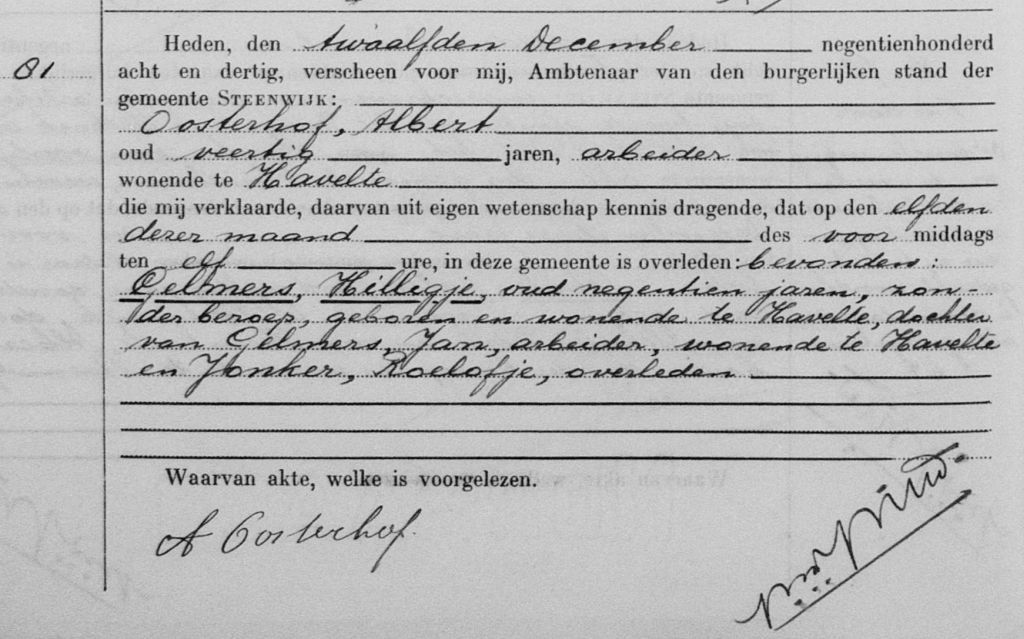 Heden, den twaalfden December negentienhonderd
81 acht en dertig, verscheen voor mij, Ambtenaar van den burgerlijken stand der
gemeente STEENWIJK:
Oosterhof, Albert
oud veertig jaren, arbeider
wonende te Havelte
die mij verklaarde, daarvan uit eigen wetenschap kennis dragende, dat op den elfden
dezer maand des voor middags
ten elf ure, in deze gemeente is overleden: bevonden:
Gelmers, Hilligje, oud negentien jaren, zon-
der beroep, geboren en wonende te Havelte, dochter
van Gelmers, Jan, arbeider, wonende te Havelte
en Jonker, Roelofje, overleden
Waarvan akte, welke is voorgelezen.
A Oosterhof